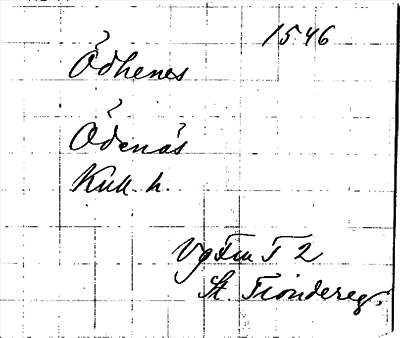 1546
Ödhenes
Ödenäs
Kull. h.
Vg Fru T 2
St. Tiondereg.